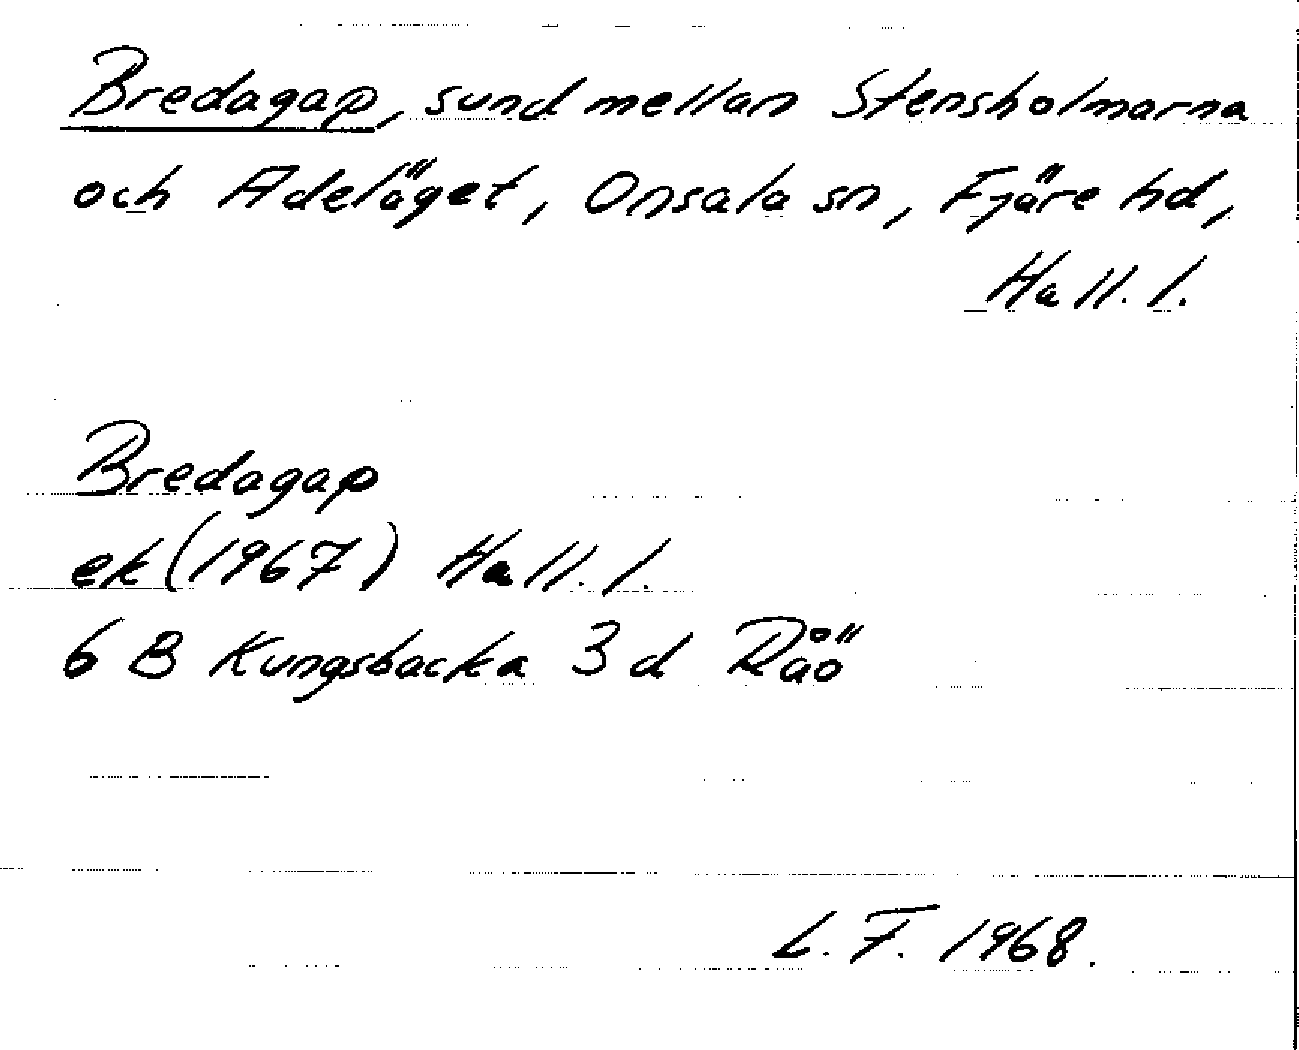 Bredagap, sund mellan Stensholmarna
och Adeläget, Onsala sn, Fjäre hd,
Hall. l.
Bredagap
ek (1967) Hall. l.
6 B Kungsbacka 3 d Råö
L. F. 1968.